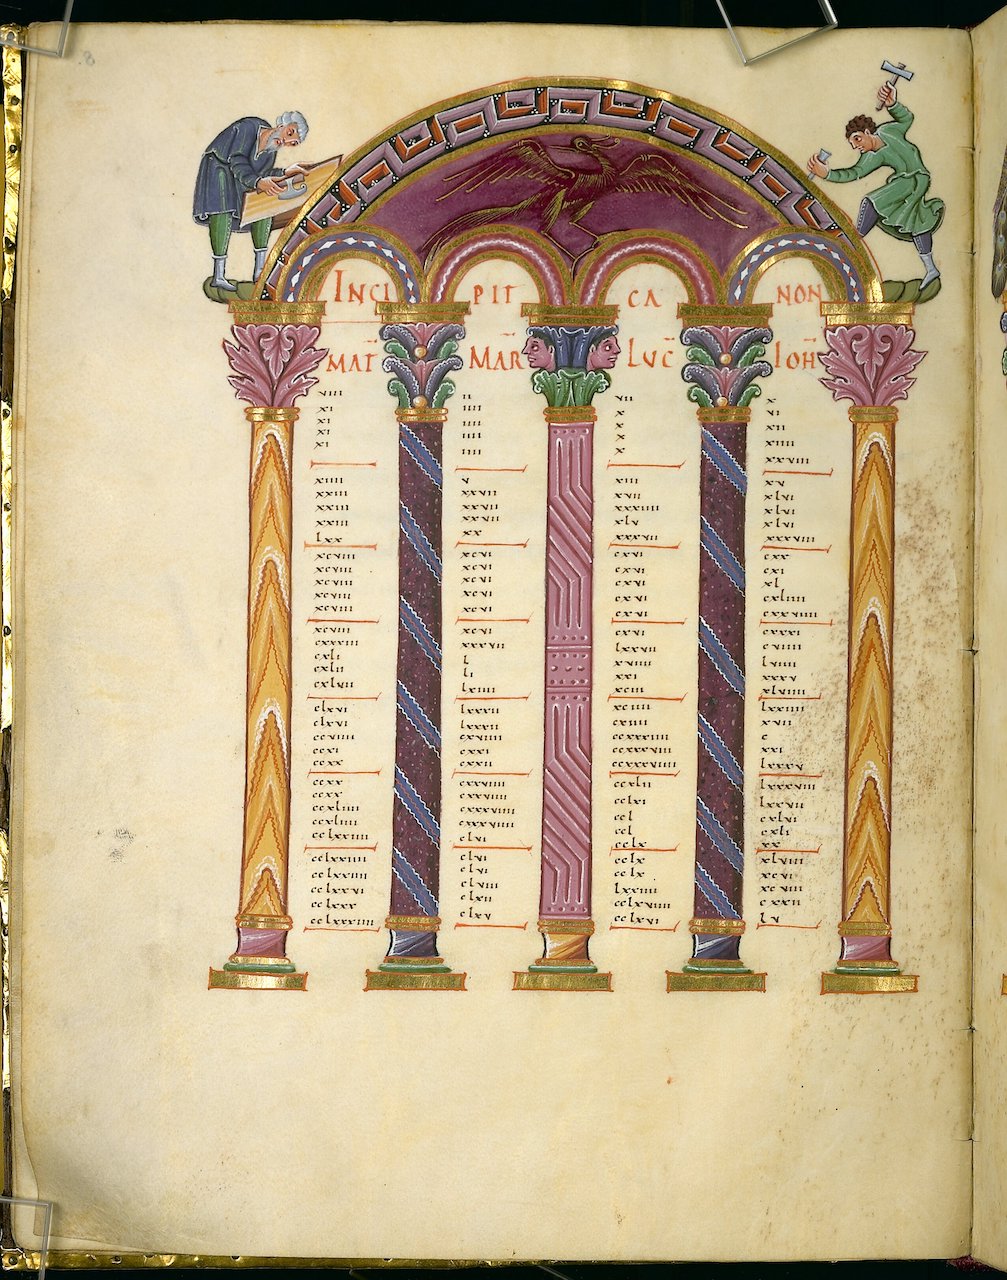 INCI PIT CA NON
MAT MAR LUC IOH
viii ii vii x
xi iiii x vi
xi iiii x xii
xi iiii x xiiii
xi iiii x xxviii
xiiii v xiii xv
xxiii xxvii xvii xlvi
xxiii xxvii xxxiiii xlvi
xxiii xxvii xlv xlvi
lxx xx xxxvii xxxviii
xcviii xcvi cxvi cxx
xcviii xcvi cxvi cxi
xcviii xcvi cxvi xl
xcviii xcvi cxvi cxliiii
xcviii xcvi cxvi cxxviiii
xcviii xcvi cxvi cxxxi
cxxxiii xxxvii lxxvii cviiii
cxli l xviiii lviiii
cxlii li xxi xxxv
cxlvii lxiiii xciii xlviiii
clxvi lxxxii xciiii lxxiiii
clxvi lxxxii cxiiii xvii
ccviiii cxviiii ccxxxiiii c
ccxi cxxi ccxxxviii xxi
ccxx cxxii ccxxxviiii lxxxv
ccxx cxxviiii ccxlii lxxxviii
ccxx cxxviiii cclxi lxxvii
ccxliiii cxxxviiii ccl cxlvi
ccxliiii cxxxviiii ccl cxli
cclxxiiii clvi cclx xx
cclxxiiii clvi cclx xlviii
cclxxiiii clvi cclx xcvi
cclxxvi clviii lxxiiii xcviii
cclxxx clxii cclxviiii cxxii
cclxxxiiii clxv cclxvi lv